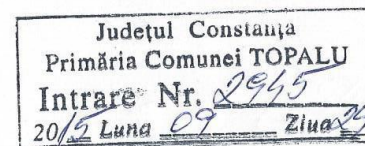 Județul Constanța
Primăria Comunei TOPALU
Intrare Nr. 2945
2015 Luna 09 Ziua 29